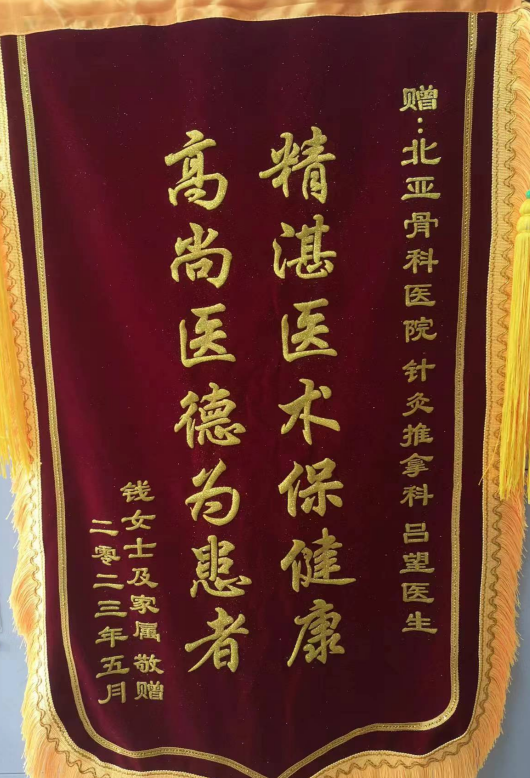 赠：北亚骨科医院 针灸推拿科 吕望医生
精湛医术保健康
高尚医德为患者
钱女士及家属 敬赠
二零二三年五月